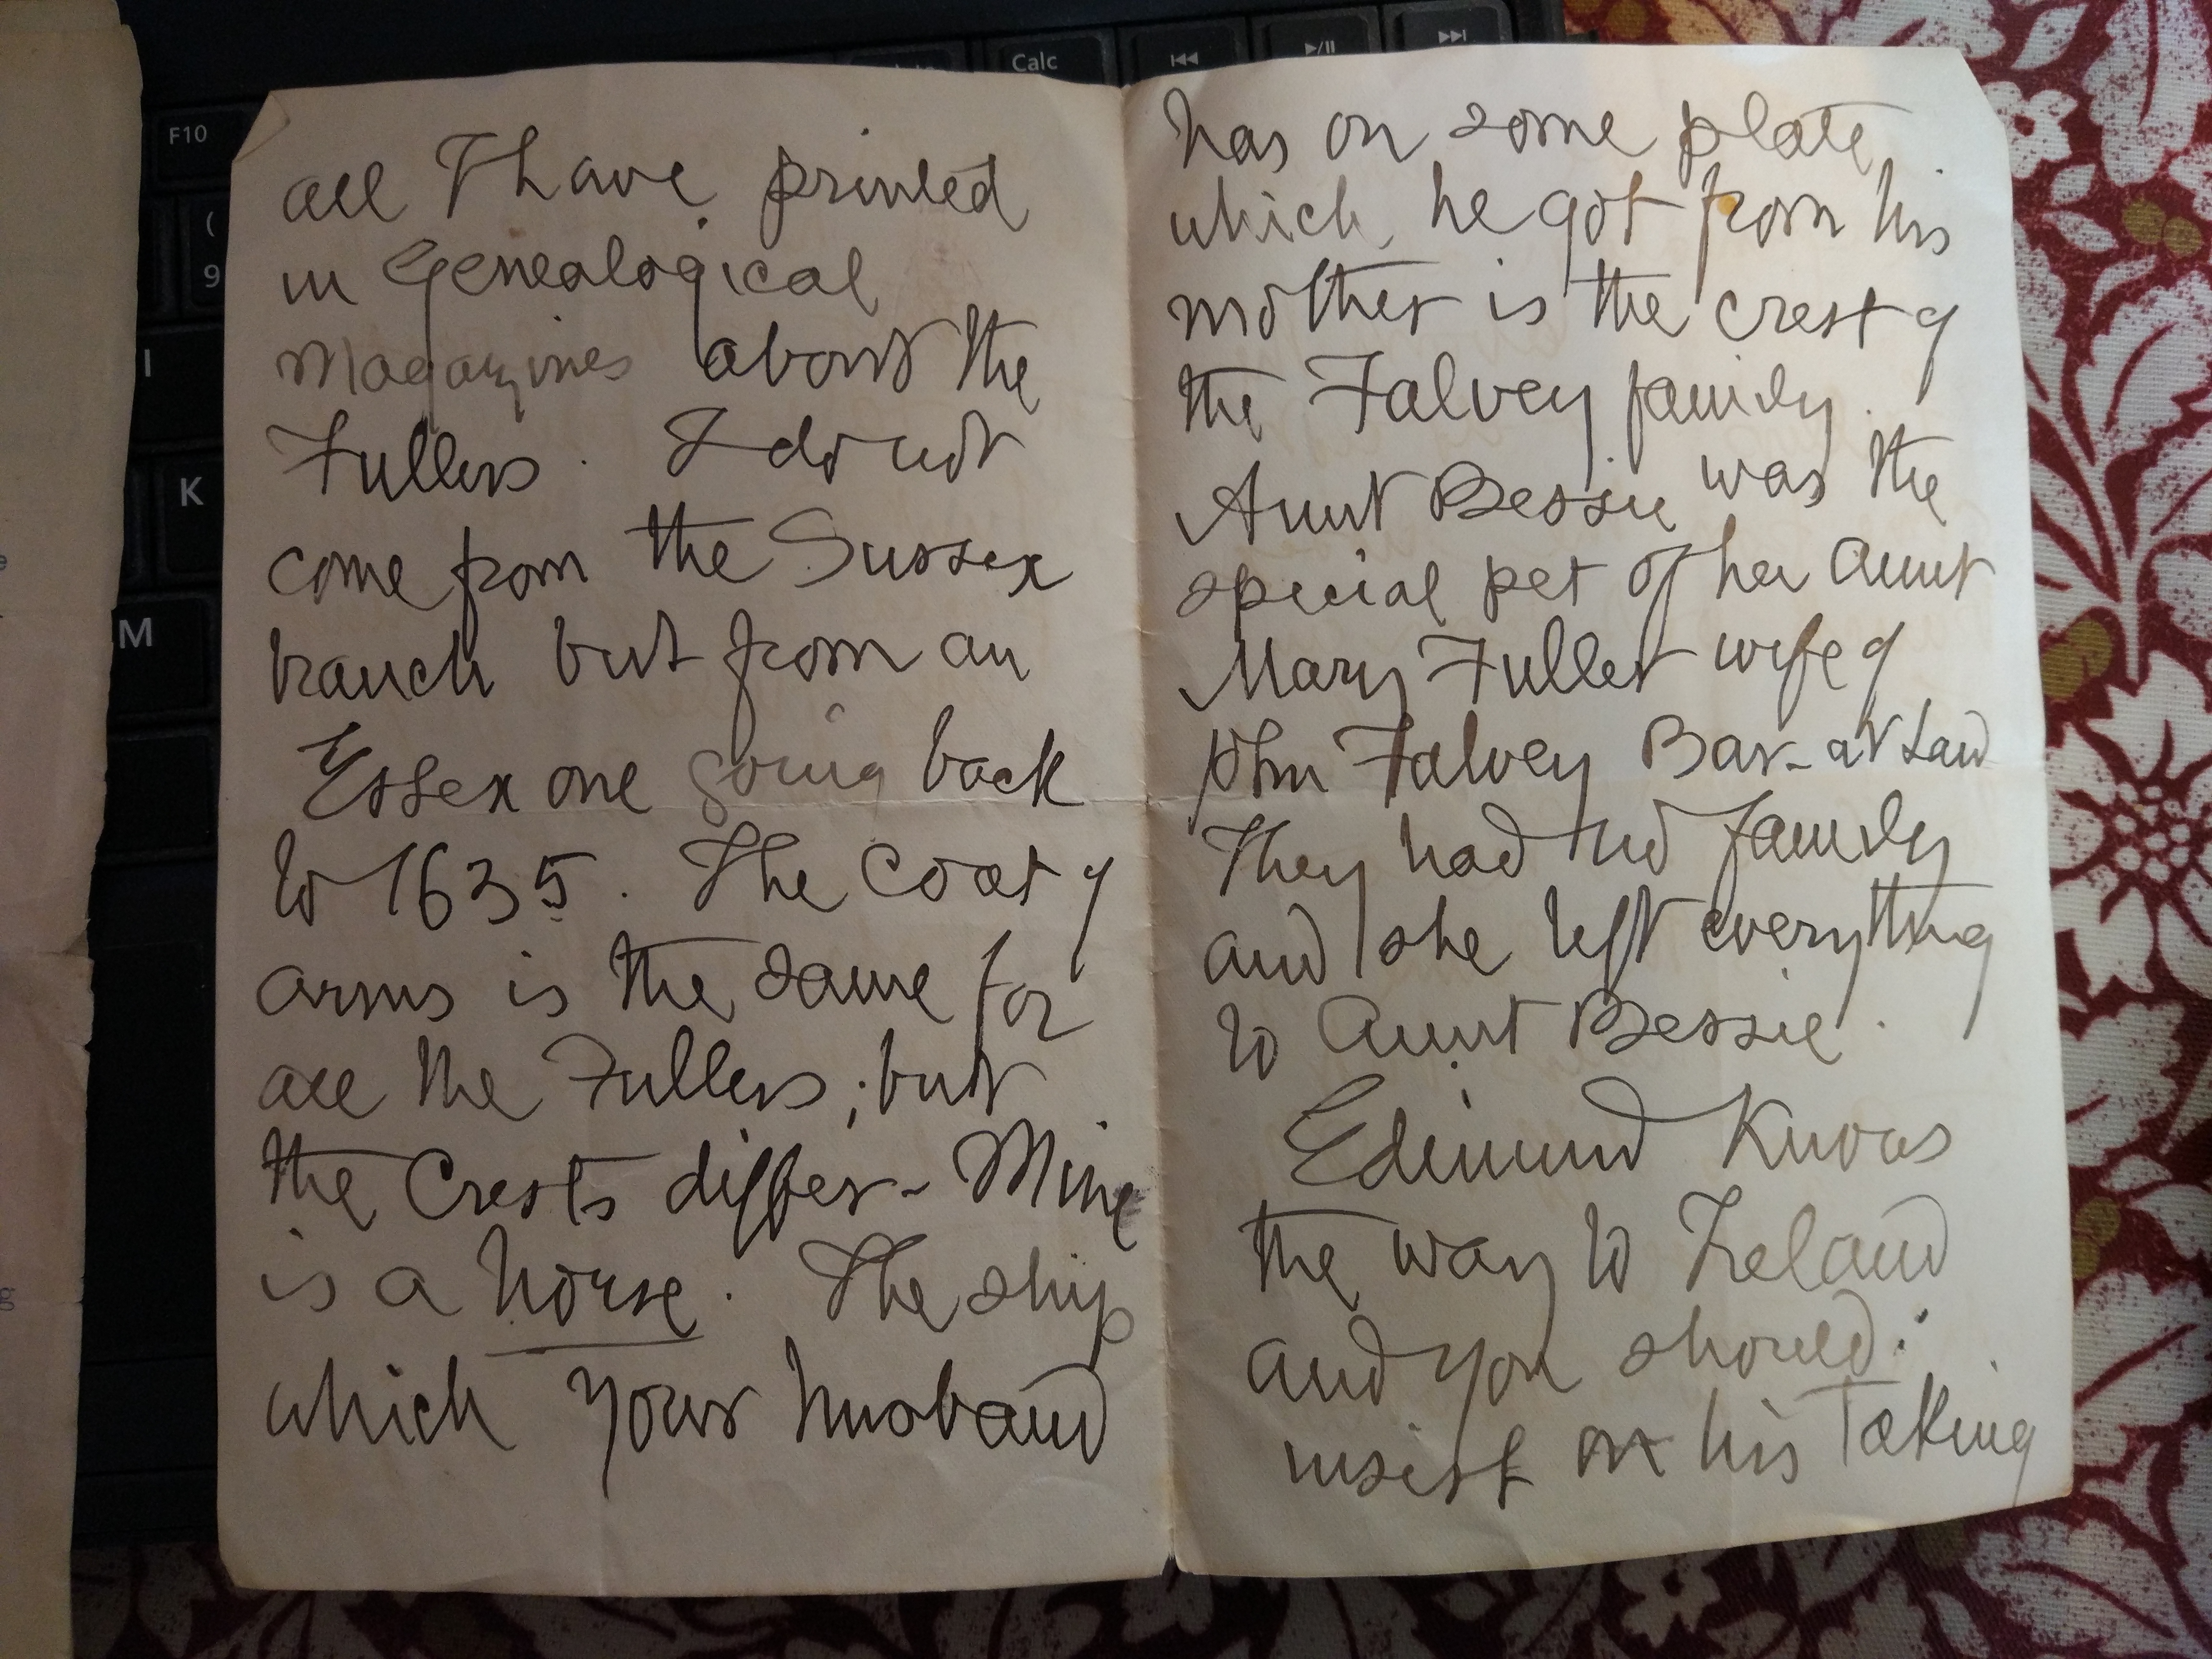 all I have printed
in Genealogical
Magazines about the
Fullers. I do not
come from the Sussex
branch but from an
Essex one going back
to 1635. The Coat of
arms is the same for
all the Fullers; but
the Crests differ - Mine
is a horse. The ship
which your husband
has on some plate
which he got from his
mother is the crest of
the Falvey family.
Aunt Bessie was the
special pet of her Aunt
Mary Fuller wife of
John Falvey Bar-at Law
They had no family
and she left everything
to Aunt Bessie.
Edmund Knows
the way to Ireland
and you should
insist on his Taking
F10
Calc
(
9
I
K
M